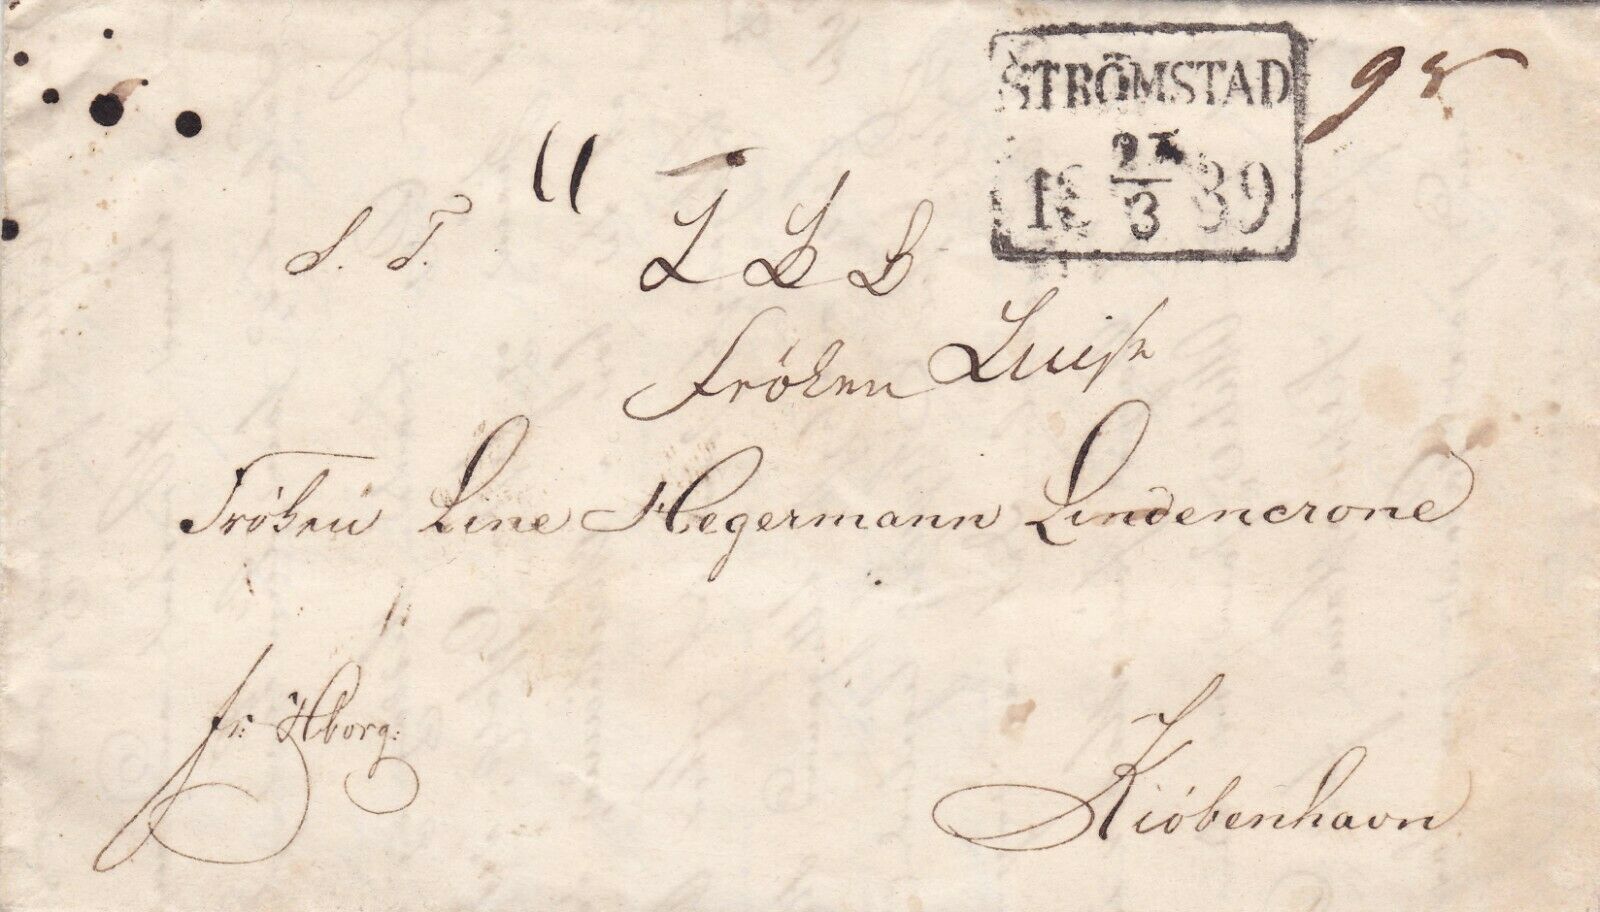 STRÖMSTAD
3
1839
S. T.
Fröken Luise
Fröken Line Hegermann Lindencrone
fr: Hborg:
Kiöbenhavn